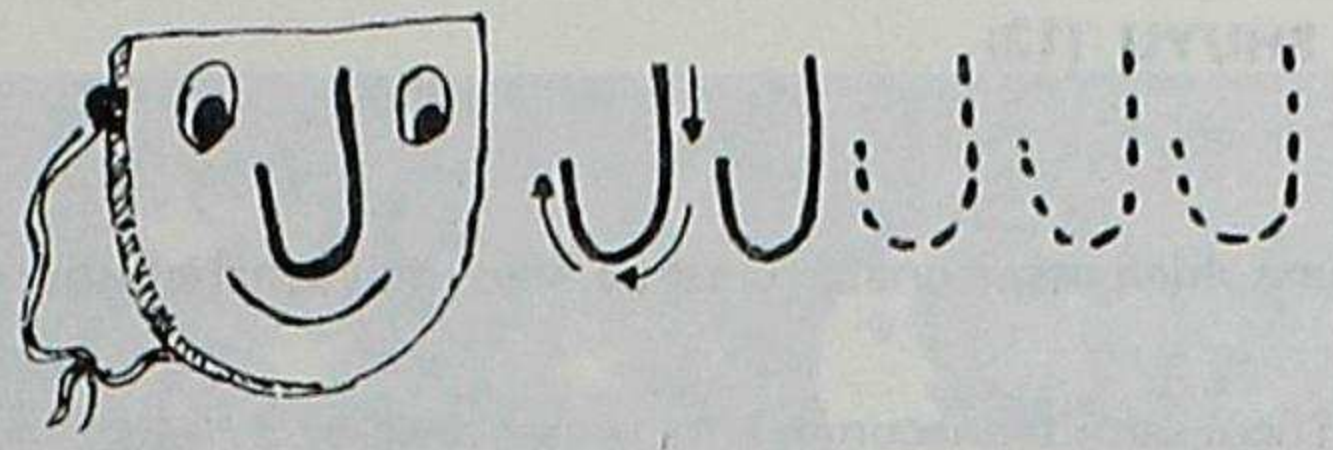 J J J J J J